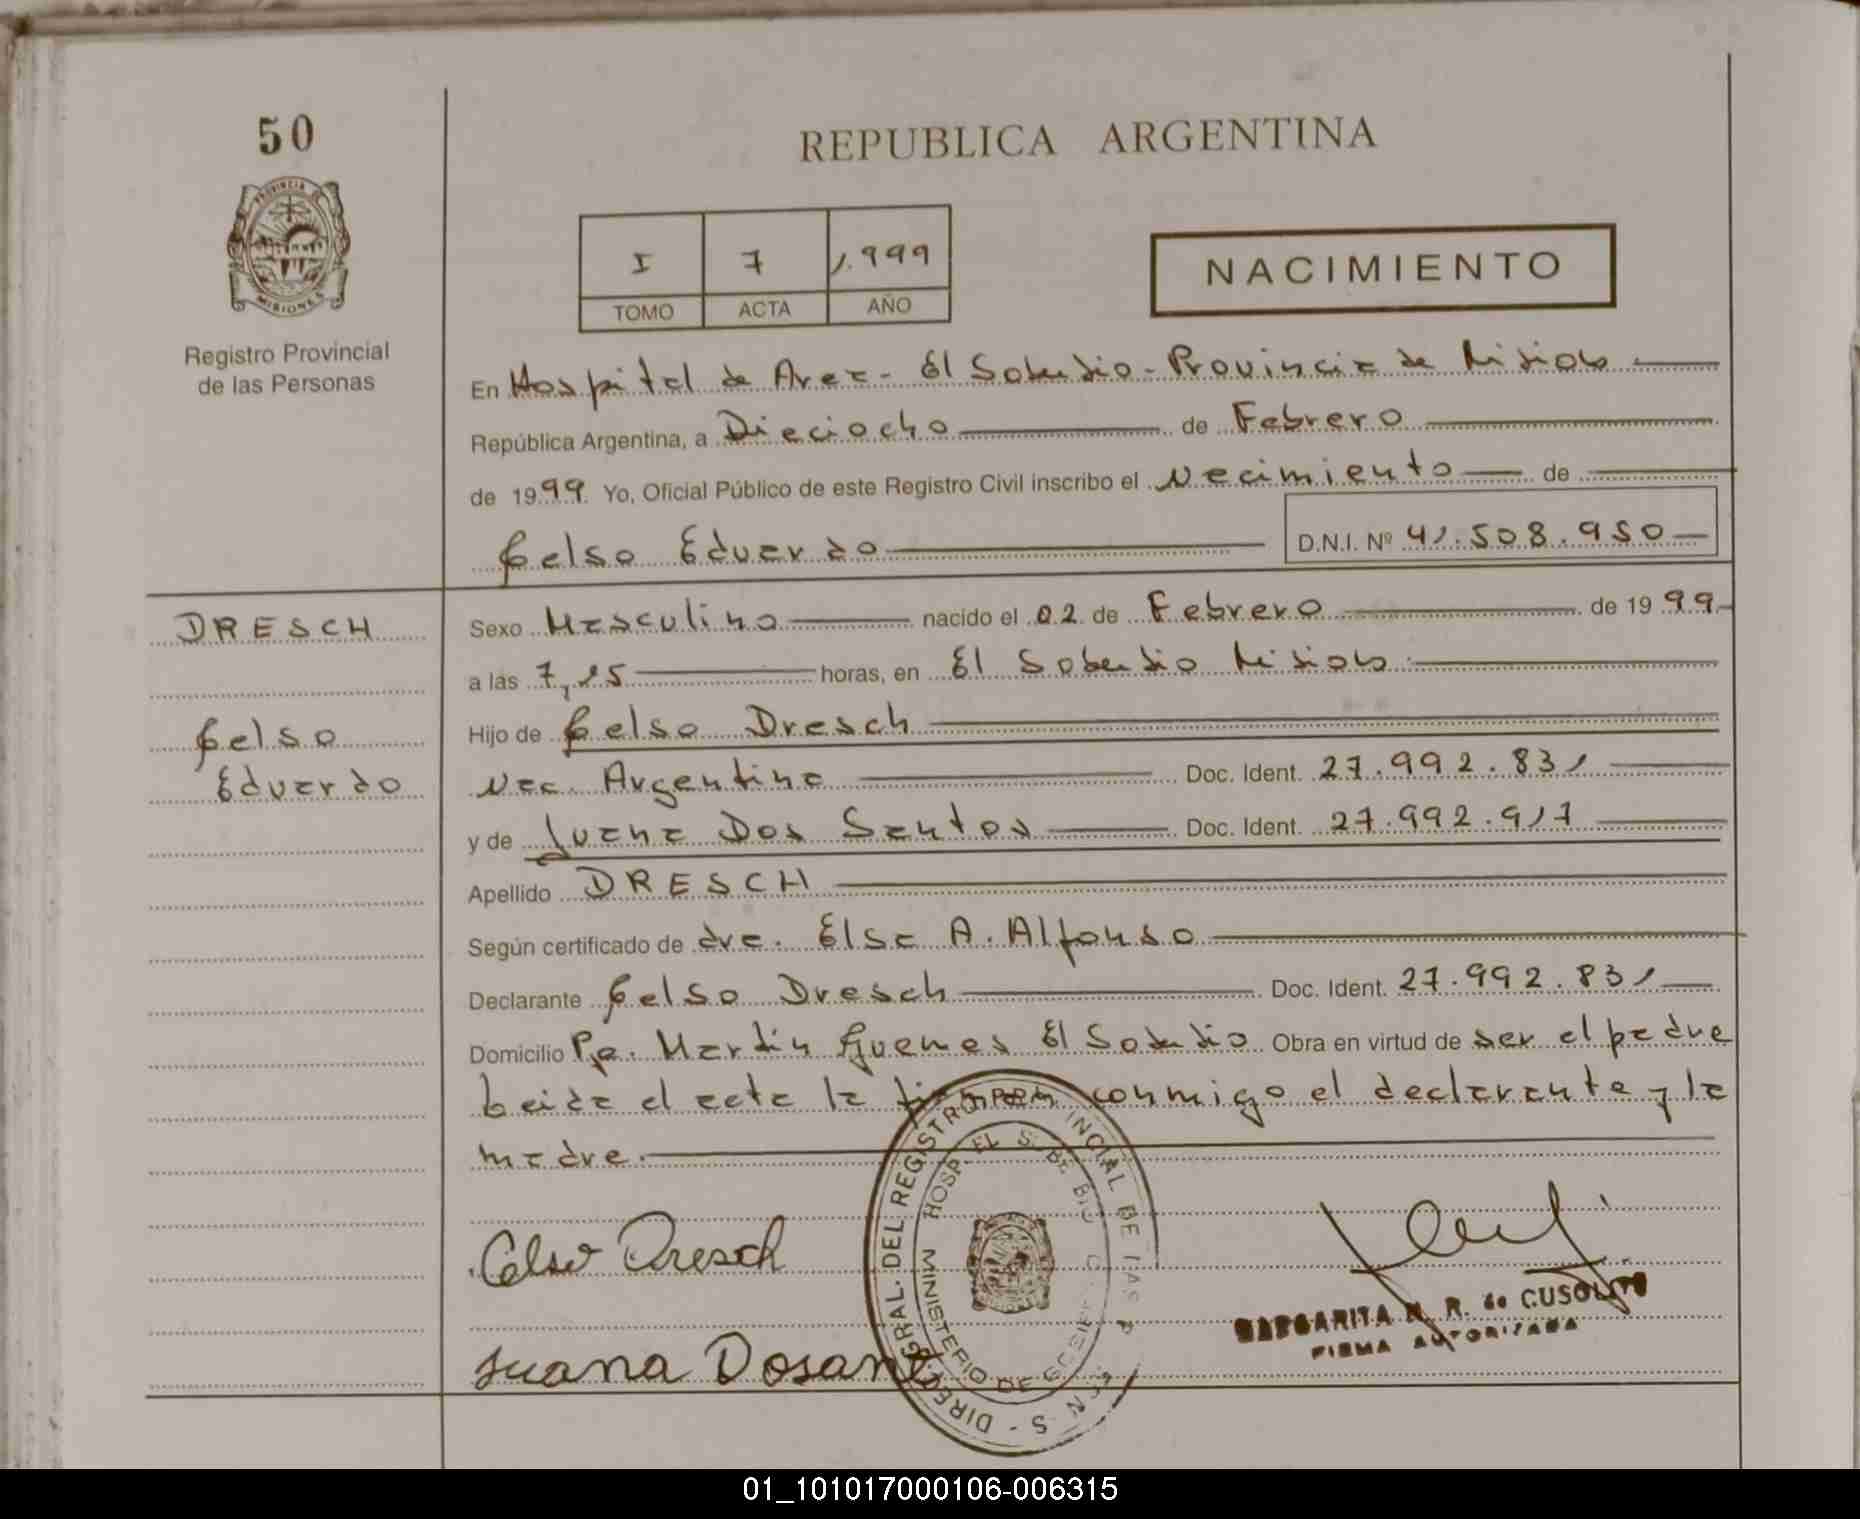 50
REPUBLICA ARGENTINA
PROVINCIA DE
MISIONES
Registro Provincial
de las Personas
I 7 1.999
TOMO ACTA AÑO
NACIMIENTO
En Hospital de Area - El Soberbio - Provincia de Misiones
República Argentina, a Dieciocho de Febrero
de 1999 Yo, Oficial Público de este Registro Civil inscribo el Nacimiento de
Celso Eduardo D.N.I. Nº 41.508.950
DRESCH
Celso
Eduardo
Sexo Masculino nacido el 02 de Febrero de 1999
a las 7,15 horas, en El Soberbio Misiones
Hijo de Celso Dresch
Nac. Argentina Doc. Ident. 27.992.831
y de Juana Dos Santos Doc. Ident. 27.992.917
Apellido DRESCH
Según certificado de dra. Elsa A. Alfonso
Declarante Celso Dresch Doc. Ident. 27.992.831
Domicilio Pje. Martin Guemes El Soberbio Obra en virtud de ser el padre
Leida el acta la firman conmigo el declarante y la
madre.
Celso Dresch
Juana Dosant
DIREC. GRAL. DEL REGISTRO PROVINCIAL DE LAS P
HOSP. EL SOBERBIO
MINISTERIO DE
MARGARITA N. R. de CUSOLITO
FIRMA AUTORIZADA
01_101017000106-006315